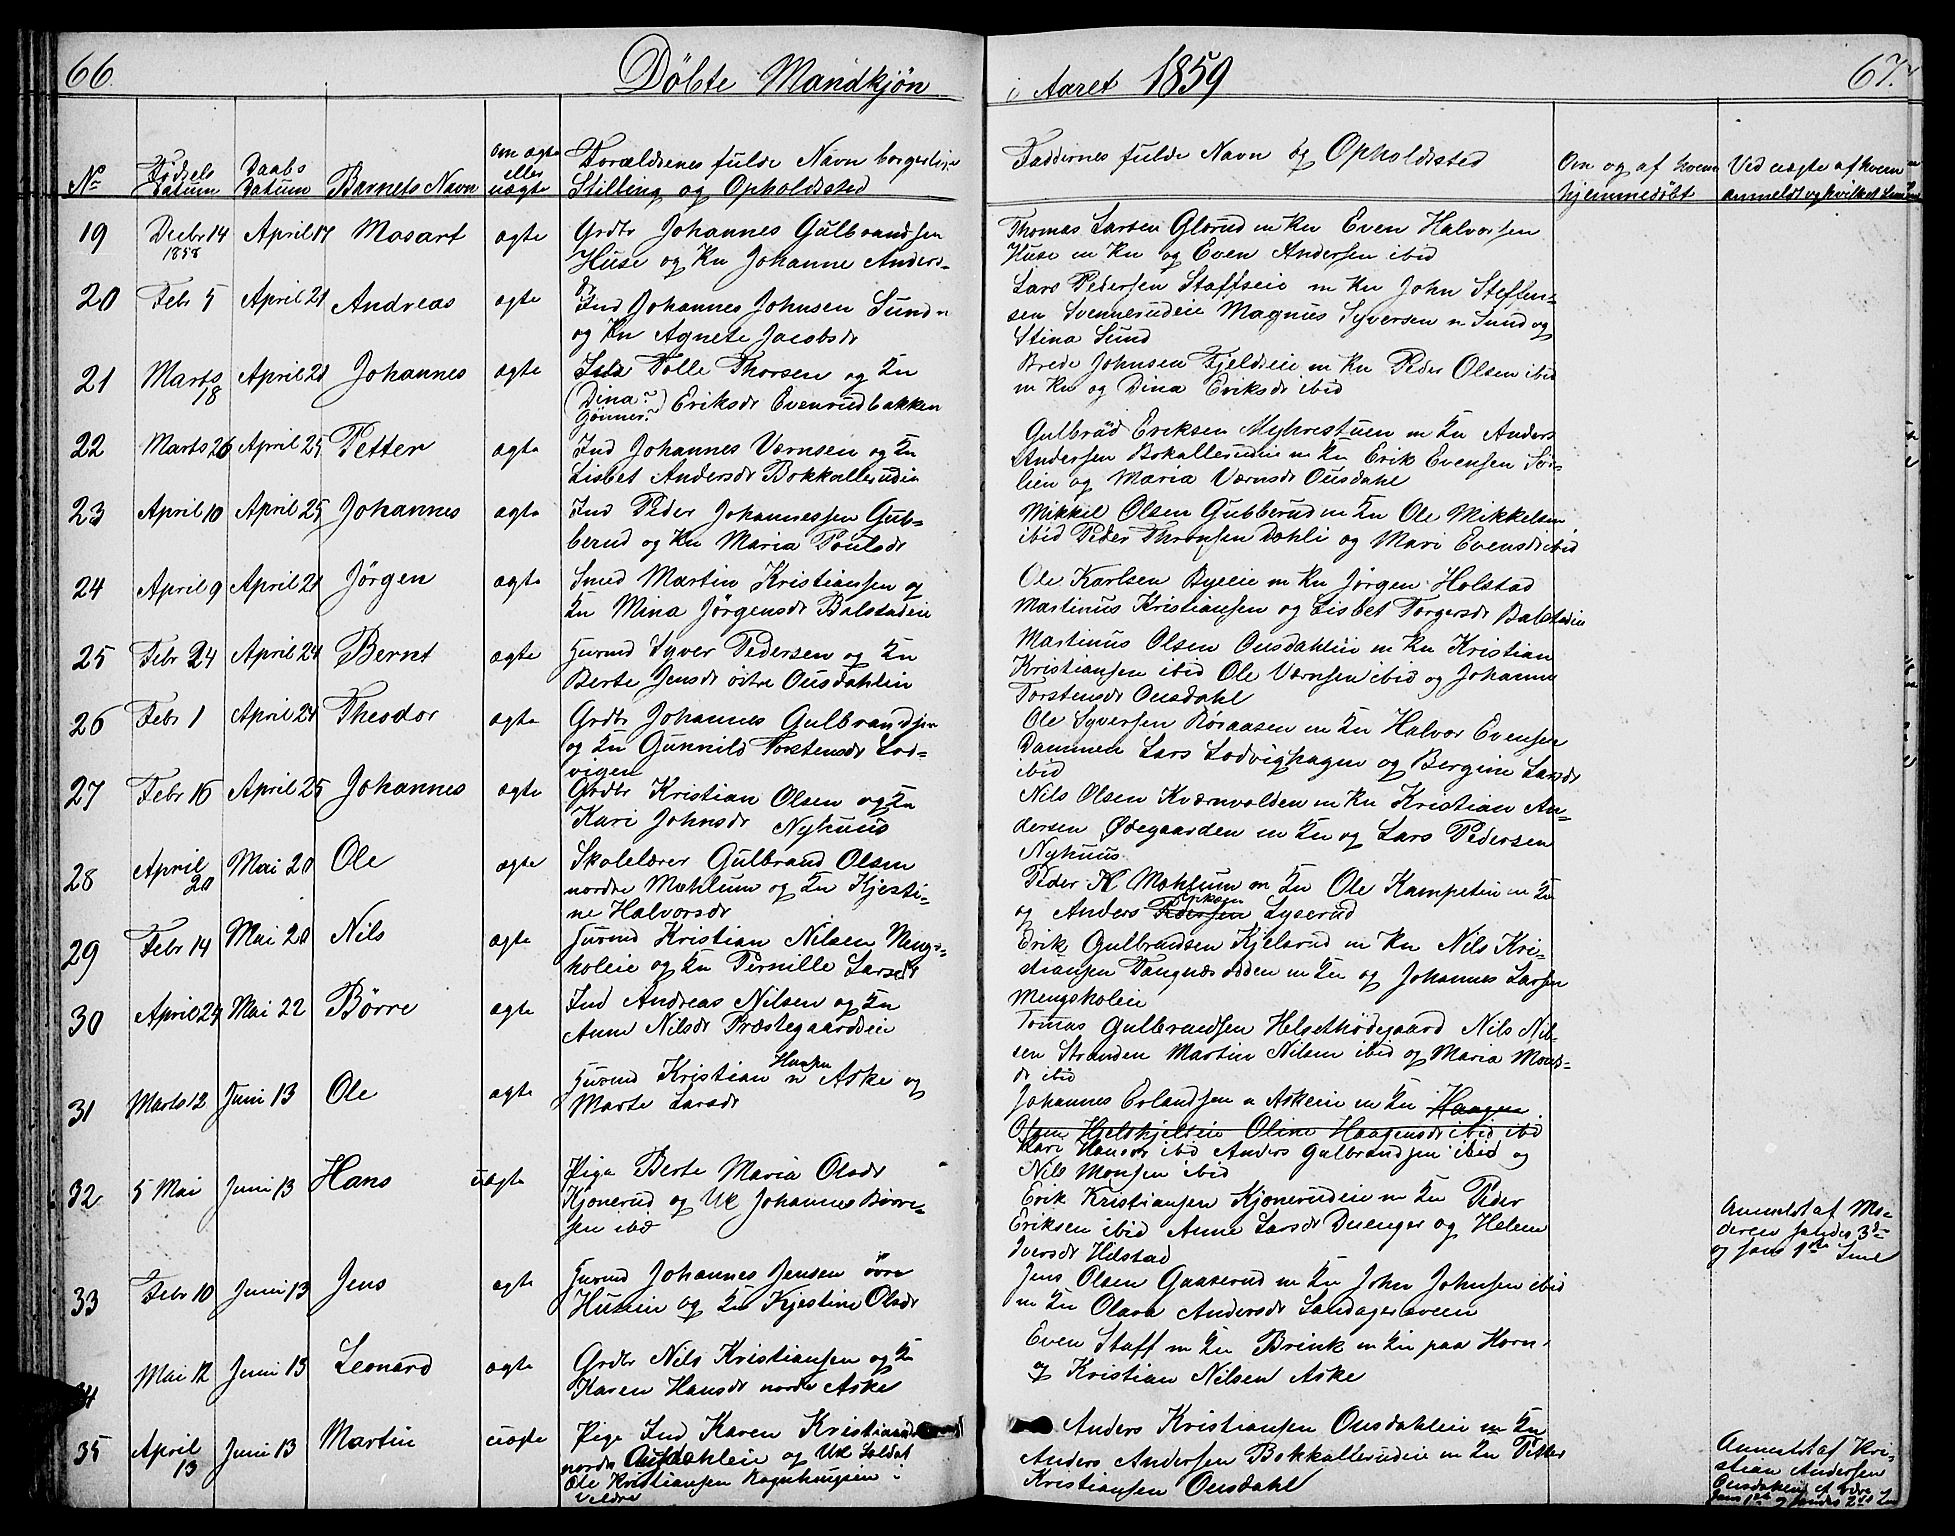 66 Döbte Mandkjön
i Aaret 1859 67.
No Födsels Datum Daabs Datum Barnets Navn om ægte eller uægte Forældrenes fulde Navn borgerlige Stilling og Opholdsted
Faddernes fulde Navn og Opholdsted Om og af hvem hjemmedöbt Ved uægte af hvem anmeldt og hvilket
19 Decbr 14 1858 April 17 Mosart ægte Grdbr Johannes Gulbrandsen
Huse og Kn Johanne Anders-
dr
Thomas Larsen Glorud m Kn Even Halvorsen
Huse m Kn og Even Andersen ibid
20 Febr 5 April 21 Andreas ægte Ind Johannes Johnsen Sund
og Kn Agnete Jacobsdr
Lars Pedersen Staffseie m Kn John Steffen-
sen Svennerudeie Magnus Syversen n Sund og
Stina Sund
21 Marts 18 April 21 Johannes ægte Tolle Thorsen og Kn
(Dina? Gönner?) Eriksdr Evenrudbakken
Brede Johnsen Fjeldseie m Kn Peder Olsen ibid
m Kn og Dina Eriksdr ibid
22 Marts 26 April 25 Petter ægte Ind Johannes Værnsen og Kn
Lisbet Andersdr Bokkallerudeie
Gulbrad Eriksen Myhrestuen m Kn Anders
Andersen Bokallerudeie m Kn Erik Evensen
lien og Maria Værnsdr Ousdahl
23 April 10 April 25 Johannes ægte Ind Peder Johannessen Gub-
berud og Kn Maria Poulsdr
Mikkel Olsen Gubberud m Kn Ole Mikkelsen
ibid Peder Thronsen Dæhli og Mari Evensdr ibid
24 April 9 April 21 Jörgen ægte Smed Martin Kristiansen og
Kn Mina Jörgensdr Balstadeie
Ole Karlsen Byeeie m Kn Jörgen Holstad
Martinus Kristiansen og Lisbet Torgersdr Balstadeie
25 Febr 24 April 24 Bernt ægte Huusmd Syver Pedersen og Kn
Berte Jensdr östre Ousdahlein
Martinus Olsen Ousdahleie m Kn Kristian
Kristiansen ibid Ole Værnsen ibid og Johanne
Torstensdr Ousdahl
26 Febr 1 April 24 Theodor ægte Grdbr Johannes Gulbrandsen
og Kn Gunnild Torstensdr Lod-
vigen
Ole Syversen Röraasen m Kn Halvor Evensen
Dammen Lars Lodvighagen og Bergine Larsdr
ibid
27 Febr 16 April 25 Johannes ægte Grdbr Kristian Olsen og Kn
Kari Johnsdr Nyhuus
Nils Olsen Kværnvolden m Kn Kristian An-
dersen Ödegaarden m Kn og Lars Pedersen
Nyhuus
28 April 20 Mai 20 Ole ægte Skolelærer Gulbrand Olsen
nordre Mæhlum og Kn Kjesti-
ne Halvorsdr
Peder K Mæhlum m Kn Ole Kampetin m Kn
og Anders Pedersen Eriksen Lyserud
29 Febr 14 Mai 20 Nils ægte Huusmd Kristian Nilsen Mengs-
holeie og Kn Pernille Larsdr
Erik Gulbrandsen Kjelsrud m Kn Nils Kri-
stiansen Tangnæsodden m Kn og Johannes Larsen
Mengsholeie
30 April 24 Mai 22 Börre ægte Ind Andreas Nilsen og Kn
Anne Nilsdr Præstegaardseie
Tomas Gulbrandsen Helsethödegaard Nils Nil-
sen Stranden Martin Nilsen ibid og Maria Mons-
dr ibid
31 Marts 12 Juni 13 Ole ægte Huusmd Kristian Hansen n Aske og
Marte Larsdr
Johannes Erlandsen n Askeeie m Kn Haagen
Olsen Hjelskjeleie Oline Haagensdr ibid ibid
Kari Hansdr ibid Anders Gulbrandsen ibid og
Nils Monsen ibid
32 5 Mai Juni 13 Hans uægte Pige Berte Maria Olsdr
Kjonerud og Uk Johannes Börre-
sen ibid
Erik Kristiansen Kjonerudeie m Kn Peder
Eriksen ibid Anne Larsdr Duenger og Helene
Iversdr Hilstad
Anmeldt af Mo-
deren hendes 3die
og hans 1ste Leie
33 Febr 10 Juni 13 Jens ægte Huusmd Johannes Jensen övre
Hunein og Kn Kjestine Olsdr
Jens Olsen Gaaserud m Kn John Johnsen ibid
m Kn Olava Andersdr Sandagersveen
34 Mai 12 Juni 13 Leonard ægte Grdbr Nils Kristiansen og K
Karen Hansdr nordre Aske
Even Staff m Kn Brink m Kn paa Horn
og Kristian Nilsen Aske
35 April 13 Juni 13 Martin uægte Pige Ind Karen Kristiansdr
nordre Ousdahleie og Uk Soldat
Ole Kristiansen Bagnhengseen i
Veldre
Anders Kristiansen Ousdahleie m Kn
Anders Andersen Bokkallerudeie m Kn Petter
Kristiansen Ousdahl
Anmeldt af Kri-
stian Andersen
Ousdahleie